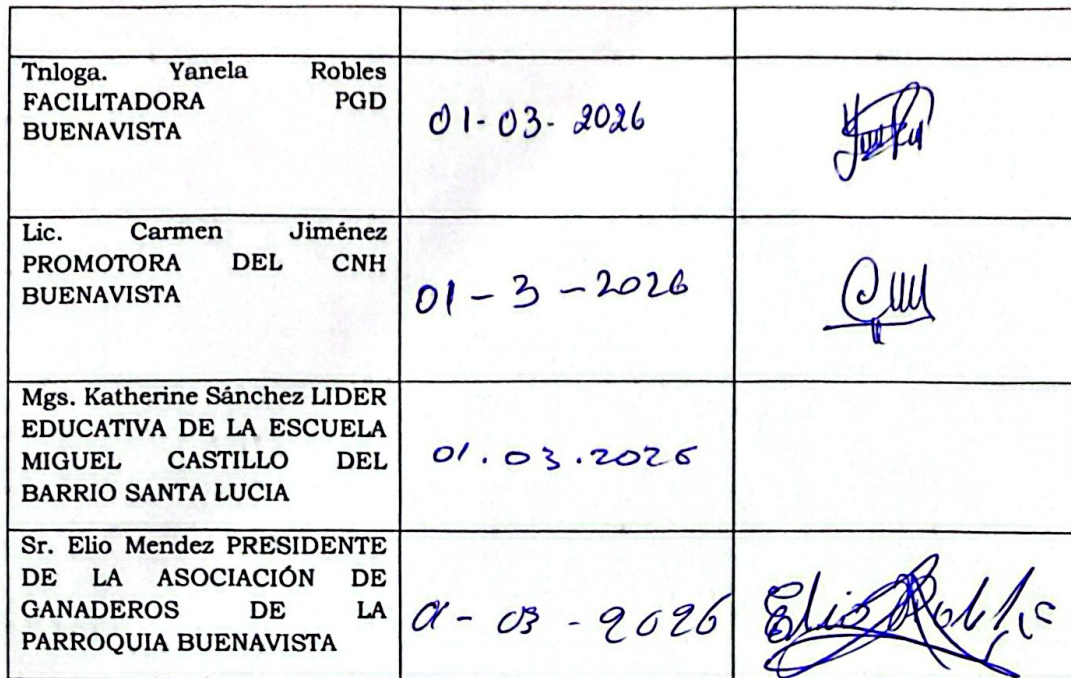 Tnloga. Yanela Robles
FACILITADORA PGD
BUENAVISTA
01-03-2026
Lic. Carmen Jiménez
PROMOTORA DEL CNH
BUENAVISTA
01-3-2026
Mgs. Katherine Sánchez LIDER
EDUCATIVA DE LA ESCUELA
MIGUEL CASTILLO DEL
BARRIO SANTA LUCIA
01.03.2026
Sr. Elio Mendez PRESIDENTE
DE LA ASOCIACIÓN DE
GANADEROS DE LA
PARROQUIA BUENAVISTA
01-03-2026
Elio